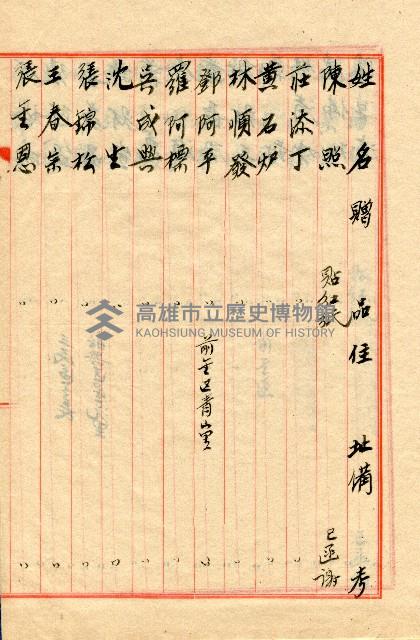 姓名 贈品 住址 備考
陳照 貼金 已函謝
莊添丁 〃 〃
黃石炉 〃 〃
林順發 〃 〃
鄧阿平 〃 前金区 〃
羅阿標 〃 〃
吳成興 〃 〃
沈生 〃 〃
張錦松 〃 〃
王春宗 〃 〃
張金恩 〃 〃
高雄市立歷史博物館
KAOHSIUNG MUSEUM OF HISTORY